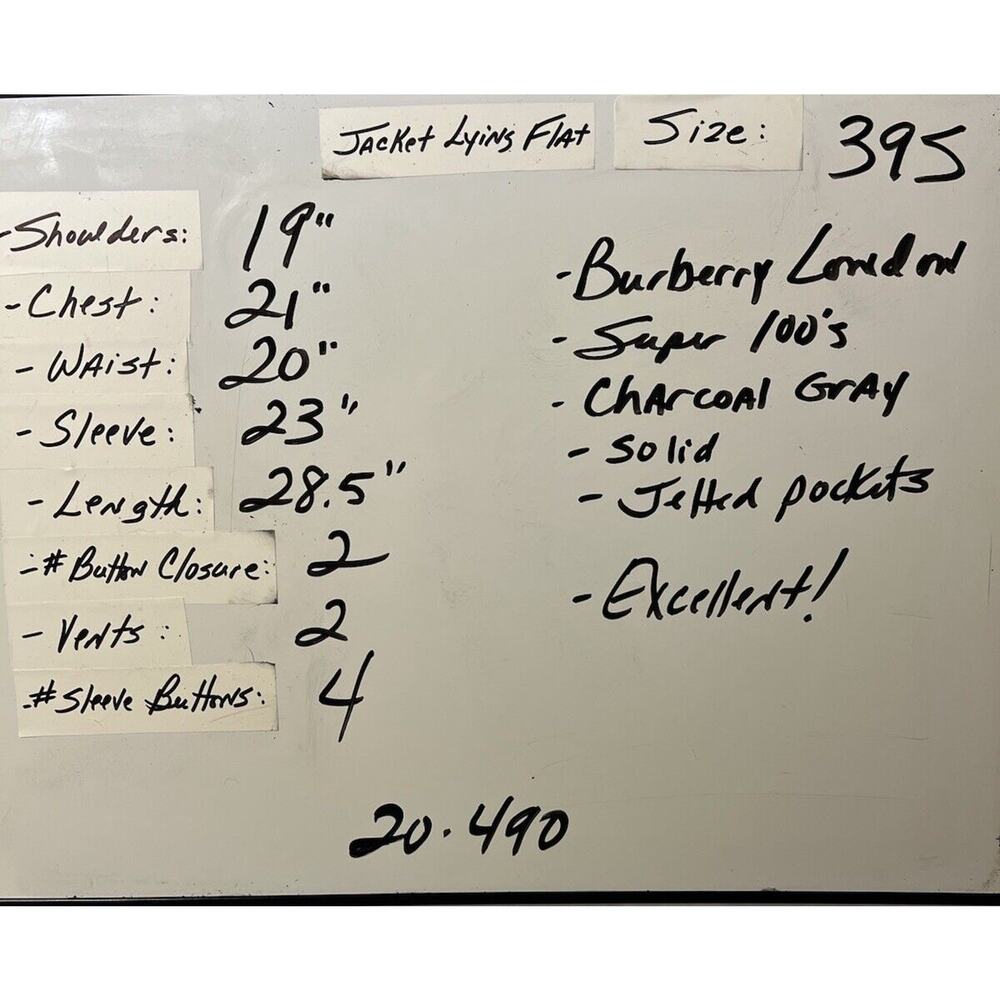 Jacket Lying Flat
Size: 39S
- Shoulders: 19"
- Chest: 21"
- Waist: 20"
- Sleeve: 23"
- Length: 28.5"
- # Button Closure: 2
- Vents: 2
- # Sleeve Buttons: 4
- Burberry London
- Super 100's
- Charcoal Gray
- Solid
- Jetted pockets
- Excellent!
20.490